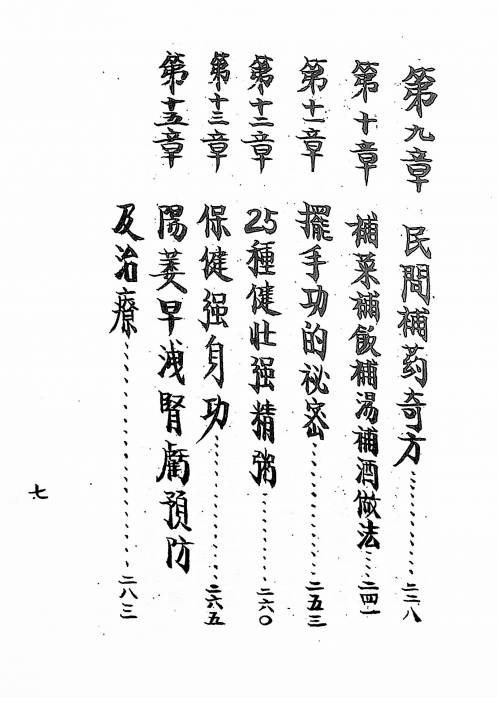 第九章 民間補药奇方…………二二八
第十章 補菜補飯補湯補酒做法……二四一
第十一章 擺手功的祕密…………二五三
第十二章 25種健壯强精粥…………二六〇
第十三章 保健强身功…………二六五
第十五章 陽萎早洩腎虧預防
及治療…………二八三
七